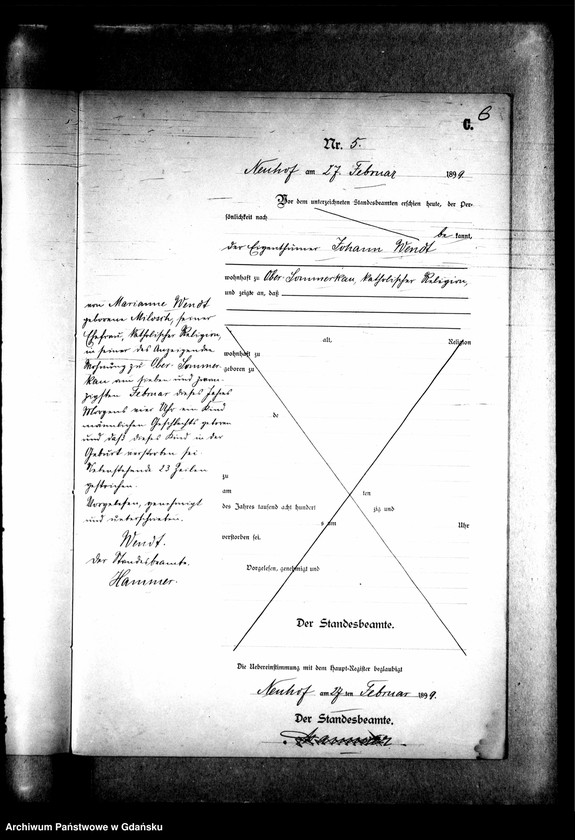 6
C.
Nr. 5.
Neuhof am 27 Februar 1899.
Vor dem unterzeichneten Standesbeamten erschien heute, der Per-
sönlichkeit nach
be kannt,
der Eigenthümer Johann Wendt
wohnhaft zu Ober-Sommerkau, katholischer Religion,
und zeigte an, daß
von Marianne Wendt
geborene Milosch, seiner
Ehefrau, katholischer Religion,
in seiner des Anzeigenden
Wohnung zu Ober-Sommer-
kau am sieben und zwan-
zigsten Februar dieses Jahres
Morgens vier Uhr ein Kind
männlichen Geschlechts geboren
und daß dieses Kind in der
Geburt verstorben sei.
Nebenstehende 23 Zeilen
gestrichen.
Vorgelesen, genehmigt
und unterschrieben.
Wendt.
Der Standesbeamte.
Hammer.
alt, Religion
wohnhaft zu
geboren zu
de
zu
am ten
des Jahres tausend acht hundert zig und
s um Uhr
verstorben sei.
Vorgelesen, genehmigt und
Der Standesbeamte.
Die Uebereinstimmung mit dem Haupt-Register beglaubigt
Neuhof am 27 ten Februar 1899.
Der Standesbeamte.
Hammer
Archiwum Państwowe w Gdańsku